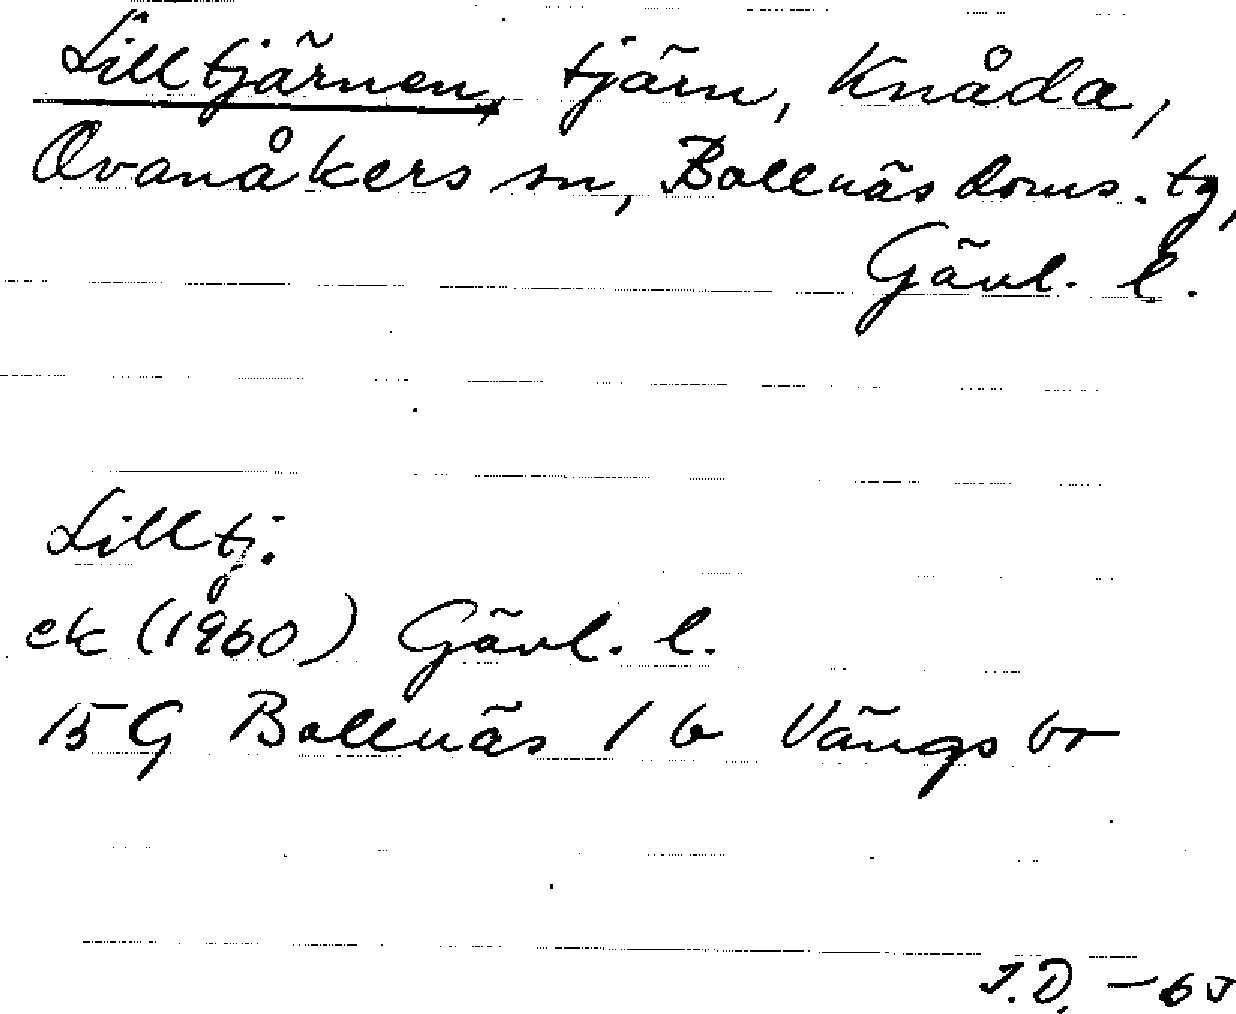 Lilltjärnen, tjärn, Knåda,
Ovanåkers sn, Bollnäs doms. tg,
Gävl. l.
Lilltj.
ek (1960) Gävl. l.
15 G Bollnäs 1 b Vängsbo